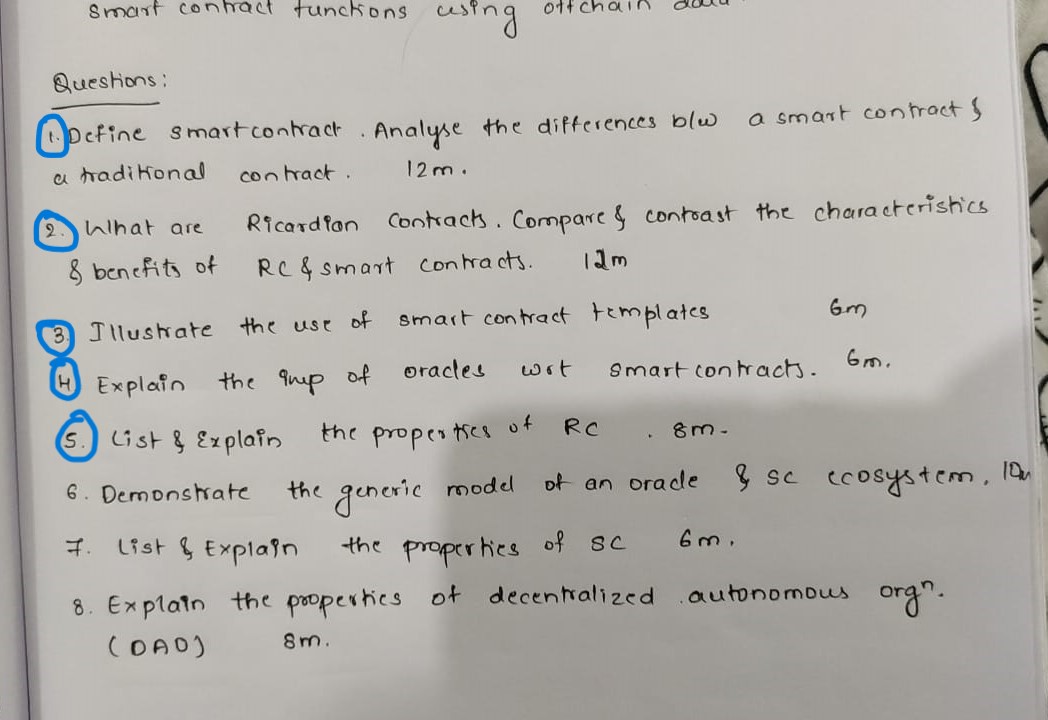 smart contract functions using offchain data
Questions:
1. Define smart contract. Analyse the differences b/w a smart contract &
a traditional contract. 12m.
2. What are Ricardian Contracts. Compare & contrast the characteristics
& benefits of RC & smart contracts. 12m
3. Illustrate the use of smart contract templates 6m
4 Explain the imp of oracles wrt smart contracts. 6m.
5. List & Explain the properties of RC . 8m.
6. Demonstrate the generic model of an oracle & SC ecosystem. 10m
7. List & Explain the properties of SC 6m.
8. Explain the properties of decentralized autonomous orgn.
(DAO) 8m.